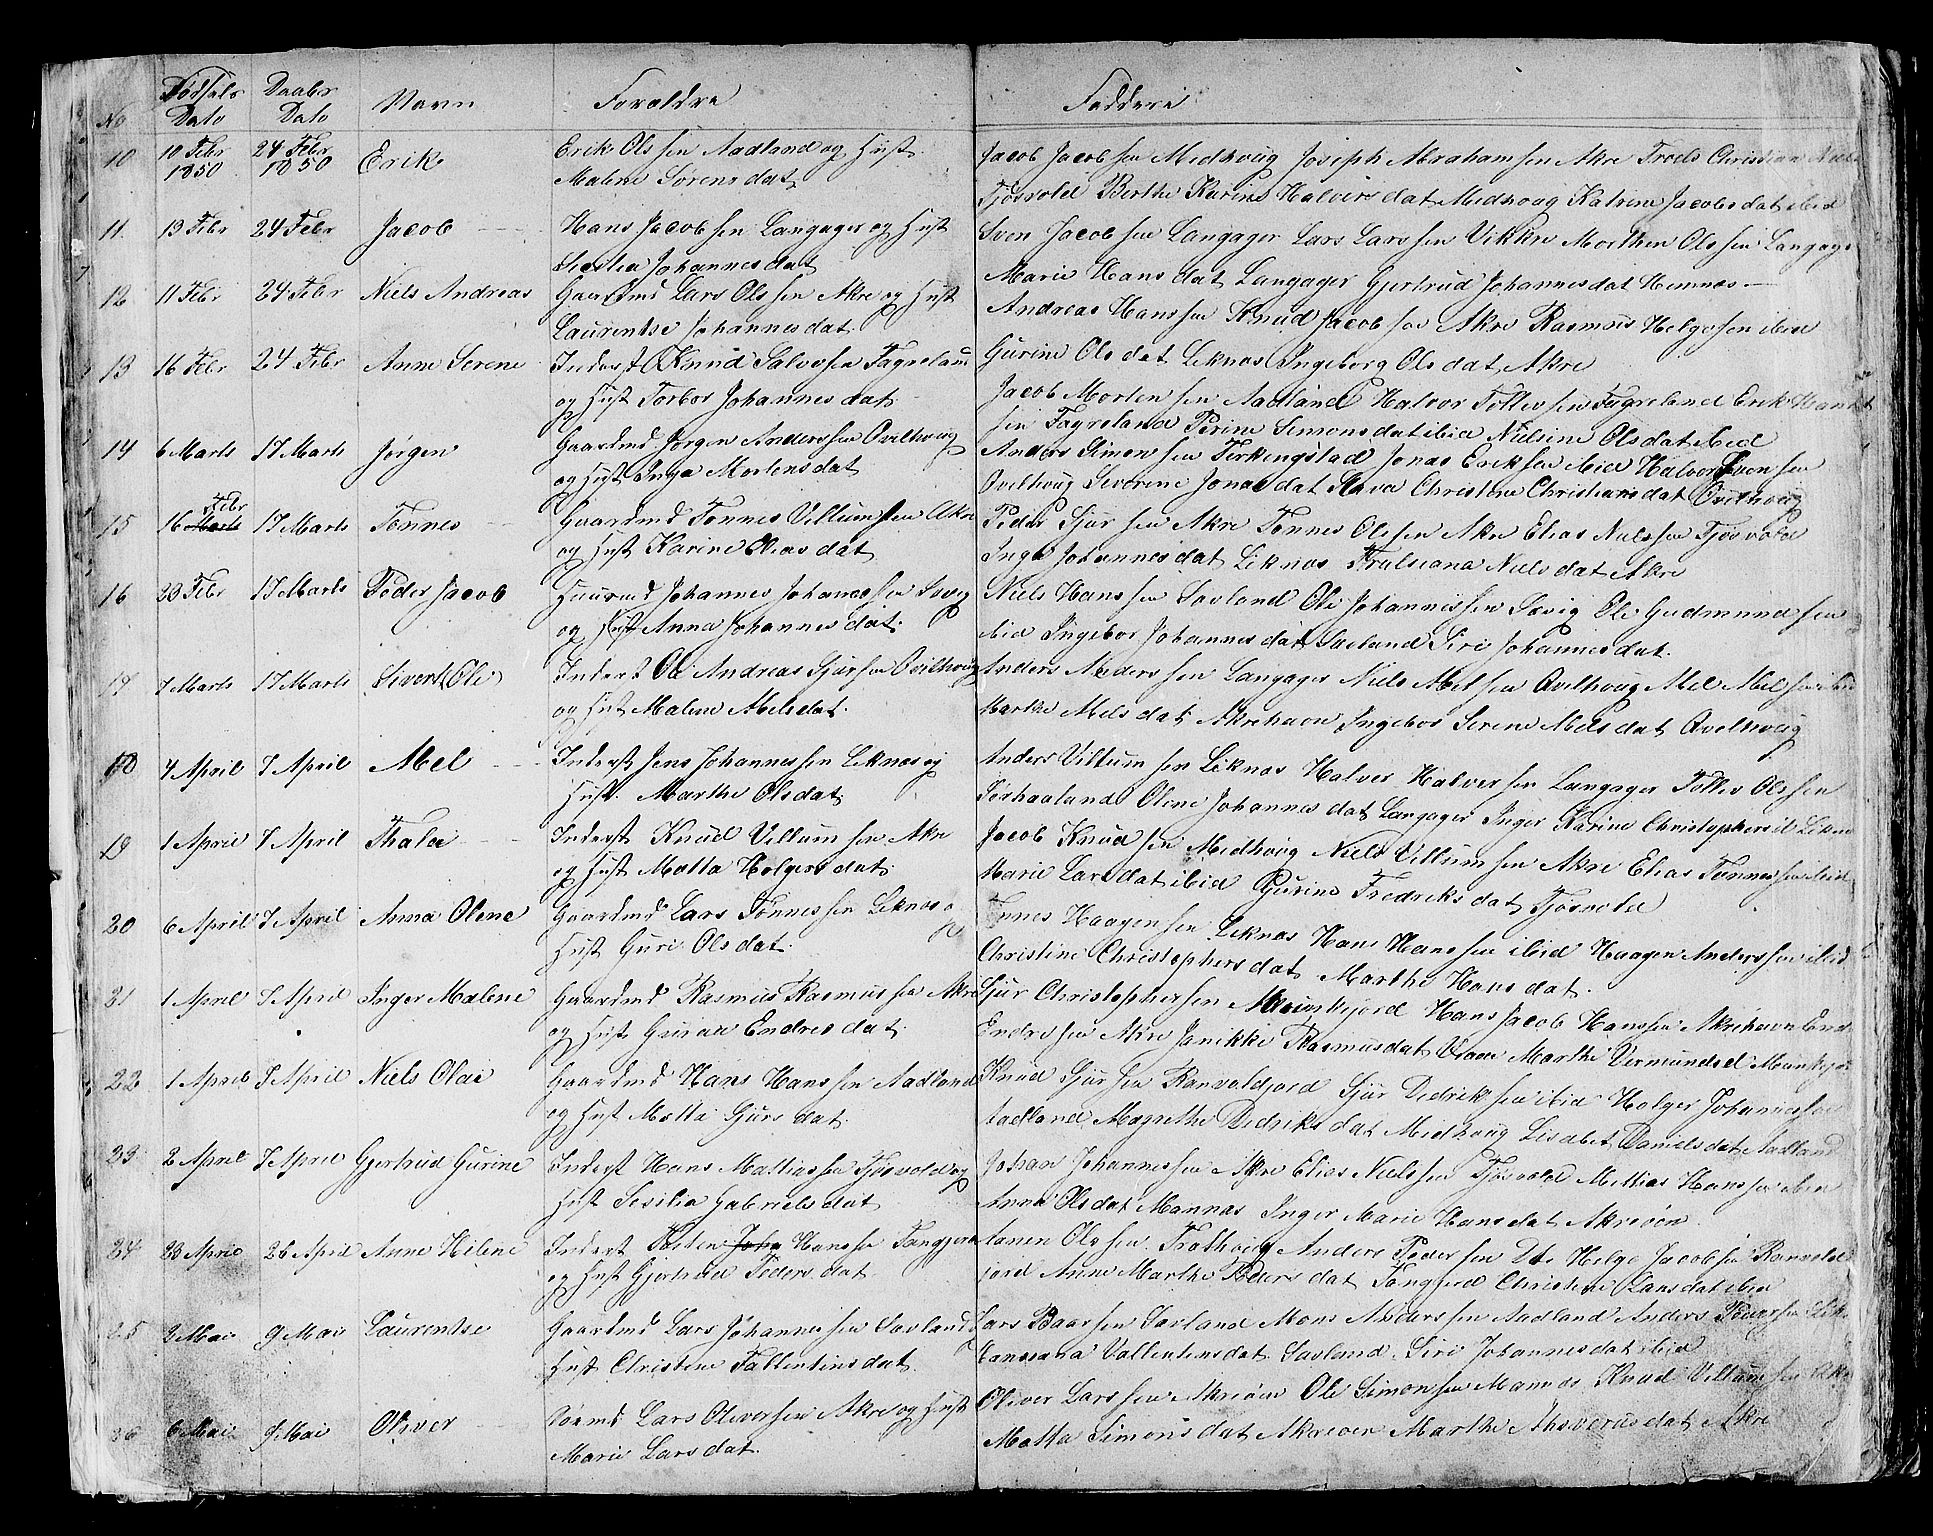 No Fødsels Dato Daabs Dato Navn Forældre Faddere
10 10 Febr 1850 24 Febr 1850 Erik Erik Olssen Aadland og Hust
Malene Sørensdat
Jacob Jacobsen Medhoug Joseph Abrahamsen Akre Troels Christian
Tjøsvold Berthe Karine Halvorsdat Medhoug Katrine Jacobsdat ibid
11 13 Febr 24 Febr Jacob Hans Jacobsen Langager og Hust
Johannesdat
Sven Jacobsen Langager Lars Larssen Vikkre Morthen Olssen Langager
Marie Hansdat Langager Gjertrud Johannesdat Hemnæs
12 11 Febr 24 Febr Niels Andreas Gaardmd Lars Olssen Akre og Hust
Laurentse Johannesdat
Andreas Hanssen Knud Jacobsen Akre Rasmus Helgesen ibid
Gurine Olsdat Liknæs Ingeborg Olsdat Akre
13 16 Febr 24 Febr Anne Serene Inderst Knud Salvessen Fagreland
og Hust Torbor Johannesdat
Jacob Mortensen Aadland Halvor Tollevsen Fagreland Erik
sen Fagreland Perine Simonsdat ibid Nielsine Olsdat ibid
14 6 Marts 17 Marts Jørgen Gaardmd Jørgen Anderssen Qvilhoug
og Hust Inga Mortensdat
Anders Simonsen Ferkingstad Jonas Eriksen ibid Halvor Svensen
Qvilhoug Severine Jonasdat Stava Christene Christiansdat Qvilhoug
15 16 Febr 17 Marts Tønnes Gaardmd Tønnes Villumsen Akre
og Hust Karine Eliasdat
Peder Sjursen Akre Tønnes Olssen Akre Elias Nielssen Tjøsvold
Inga Johannesdat Liknæs Nielsdat Akre
16 23 Febr 17 Marts Peder Jacob Huusmd Johannes Johannessen Sævig
og Hust Anna Johannesdat
Niels Hanssen Søvland Ole Johannessen Sævig Ole Gudmundsen
ibid Ingebor Johannesdat Søvland Siri Johannesdat
17 7 Marts 17 Marts Sivert Ole Inderst Ole Andreas Sjursen Qvilhoug
og Hust Malene Abelsdat
Anders Anderssen Langager Niels Abelsen Qvilhoug Abel Abelsen ibid
Marthe Abelsdat Akrehavn Ingebor Serene Abelsdat Qvilhoug
18 4 April 7 April Abel Inderst Jens Johannessen Liknæs og
Hust Marthe Olsdat
Anders Villumsen Liknæs Halvor Halvorsen Langager Tollev Olssen
Olene Johannesdat Langager Inger Karine Christophersd
19 1 April 7 April Thalea Inderst Knud Villumsen Akre
og Hust Matta Holgersdat
Jacob Knudsen Medhoug Niels Villumsen Akre Elias Tønnessen ibid
Marie Larsdat ibid Gurine Fredriksdat Tjøsvold
20 6 April 7 April Anna Olene Gaardmd Lars Tønnessen Liknæs og
Hust Guri Olsdat
Tønnes Haagensen Liknæs Hans Hanssen ibid Haagen Anderssen ibid
Christine Christophersdat Marthe Hansdat
21 1 April 7 April Inger Malene Gaardmd Rasmus Rasmussen Akre
og Hust Endresdat
Sjur Christophersen Hans Jacob Hanssen Akrehavn
Endresen Akre Janikke Rasmusdat Marthe Vermundsd
22 1 April 7 April Niels Olai Gaardmd Hans Hanssen Aadland
og Hust Matta Sjursdat
Knud Sjursen Ranvoldjord Sjur Dedriksen ibid Holger Johannessen
Aadland Magrethe Dedriksdat Medhoug Lisabet Danielsdat Aadland
23 2 April 7 April Gjertrud Gurine Inderst Hans Mattiassen Tjøsvold og
Hust Sesilia Gabrielsdat
Johan Johannessen Akre Elias Nielssen Tjøsvold Mattias Hanssen ibid
Anna Olsdat Mannæs Inger Marie Hansdat Akreøen
24 23 April 28 April Anne Helene Inderst Hanssen
og Hust Gjertrud Pedersdat
Olssen Anders Pedersen Do Helge Jacobsen Ranvold
jord Anne Marthe Pedersdat Christene Larsdat ibid
25 2 Mai 9 Mai Laurentse Gaardmd Lars Johannessen Søvland
Hust Christene Fallentinsdat
Lars Baarsen Søvland Mons Anderssen Aadland Anders
Vallentinsdat Søvland Siri Johannesdat ibid
26 6 Mai 9 Mai Oliver Lars Oliversen Akre og Hust
Marie Larsdat
Oliver Larssen Akreøen Ole Simonsen Mannæs Knud Villumsen Akre
Matta Simonsdat Akreøen Marthe Asverusdat Akre